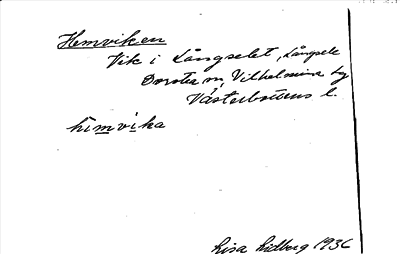 Hemviken
Vik i Långselet, Långsele
Dorotea m, Vilhelmina
Västerbottens l.
hìmvika
Lisa Lidberg 1936